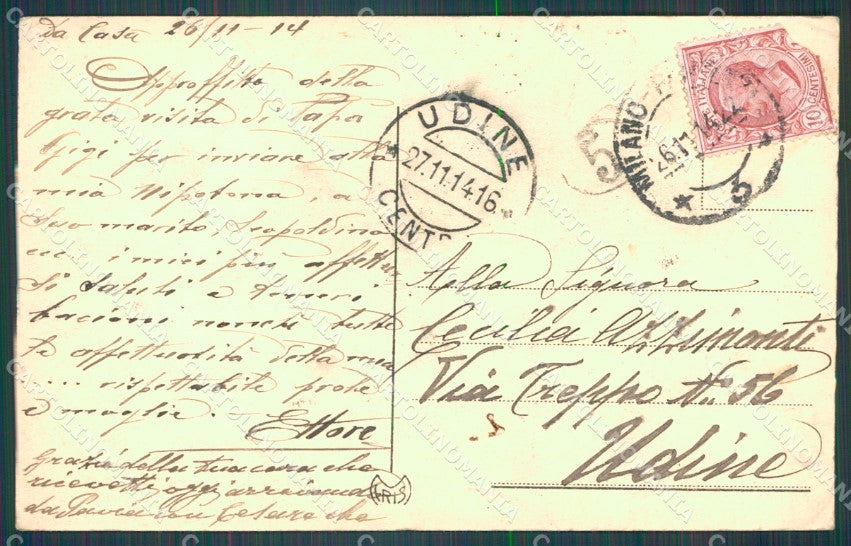 Da Casa 26/11-14
Approffitto della
grata visita di Papà
Gigi per inviare alla
mia Nipotona, a
suo marito, Leopoldino
ecc i miei più affettuo
si saluti e sinceri
bacioni nonchè tutte
le affettuosità della mia
... rispettabile prole
e moglie.
Ettore
Grazie della tua cara che
ricevetti oggi arrivando
da Pavia con Cesare che
UDINE
27.11.14.16
CENTR
5
MILANO
26.11.14
5
POSTE ITALIANE
CENTESIMI 10
Alla Signora
Cecilia Azzimonti
Via Treppo N. 56
Udine
ARS
CARTOLINOMANIA